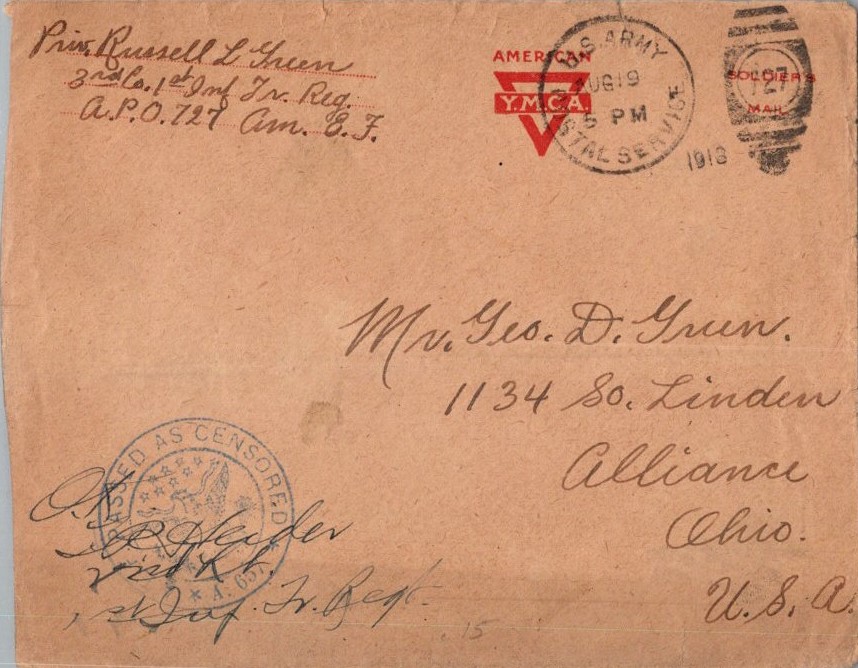 Priv. Russell L Green
3rd Co. 1st Inf Tr. Reg.
A.P.O. 727 Am. E. F.
AMERICAN
Y.M.C.A.
U.S. ARMY
AUG 19
5 PM
POSTAL SERVICE
1918
SOLDIER'S
727
MAIL
Mr. Geo. D. Green.
1134 So. Linden
Alliance
Ohio.
U.S.A.
PASSED AS CENSORED
A. 657
O.K.
Heider
2nd Lt.
1st Inf. Tr. Regt.
.15